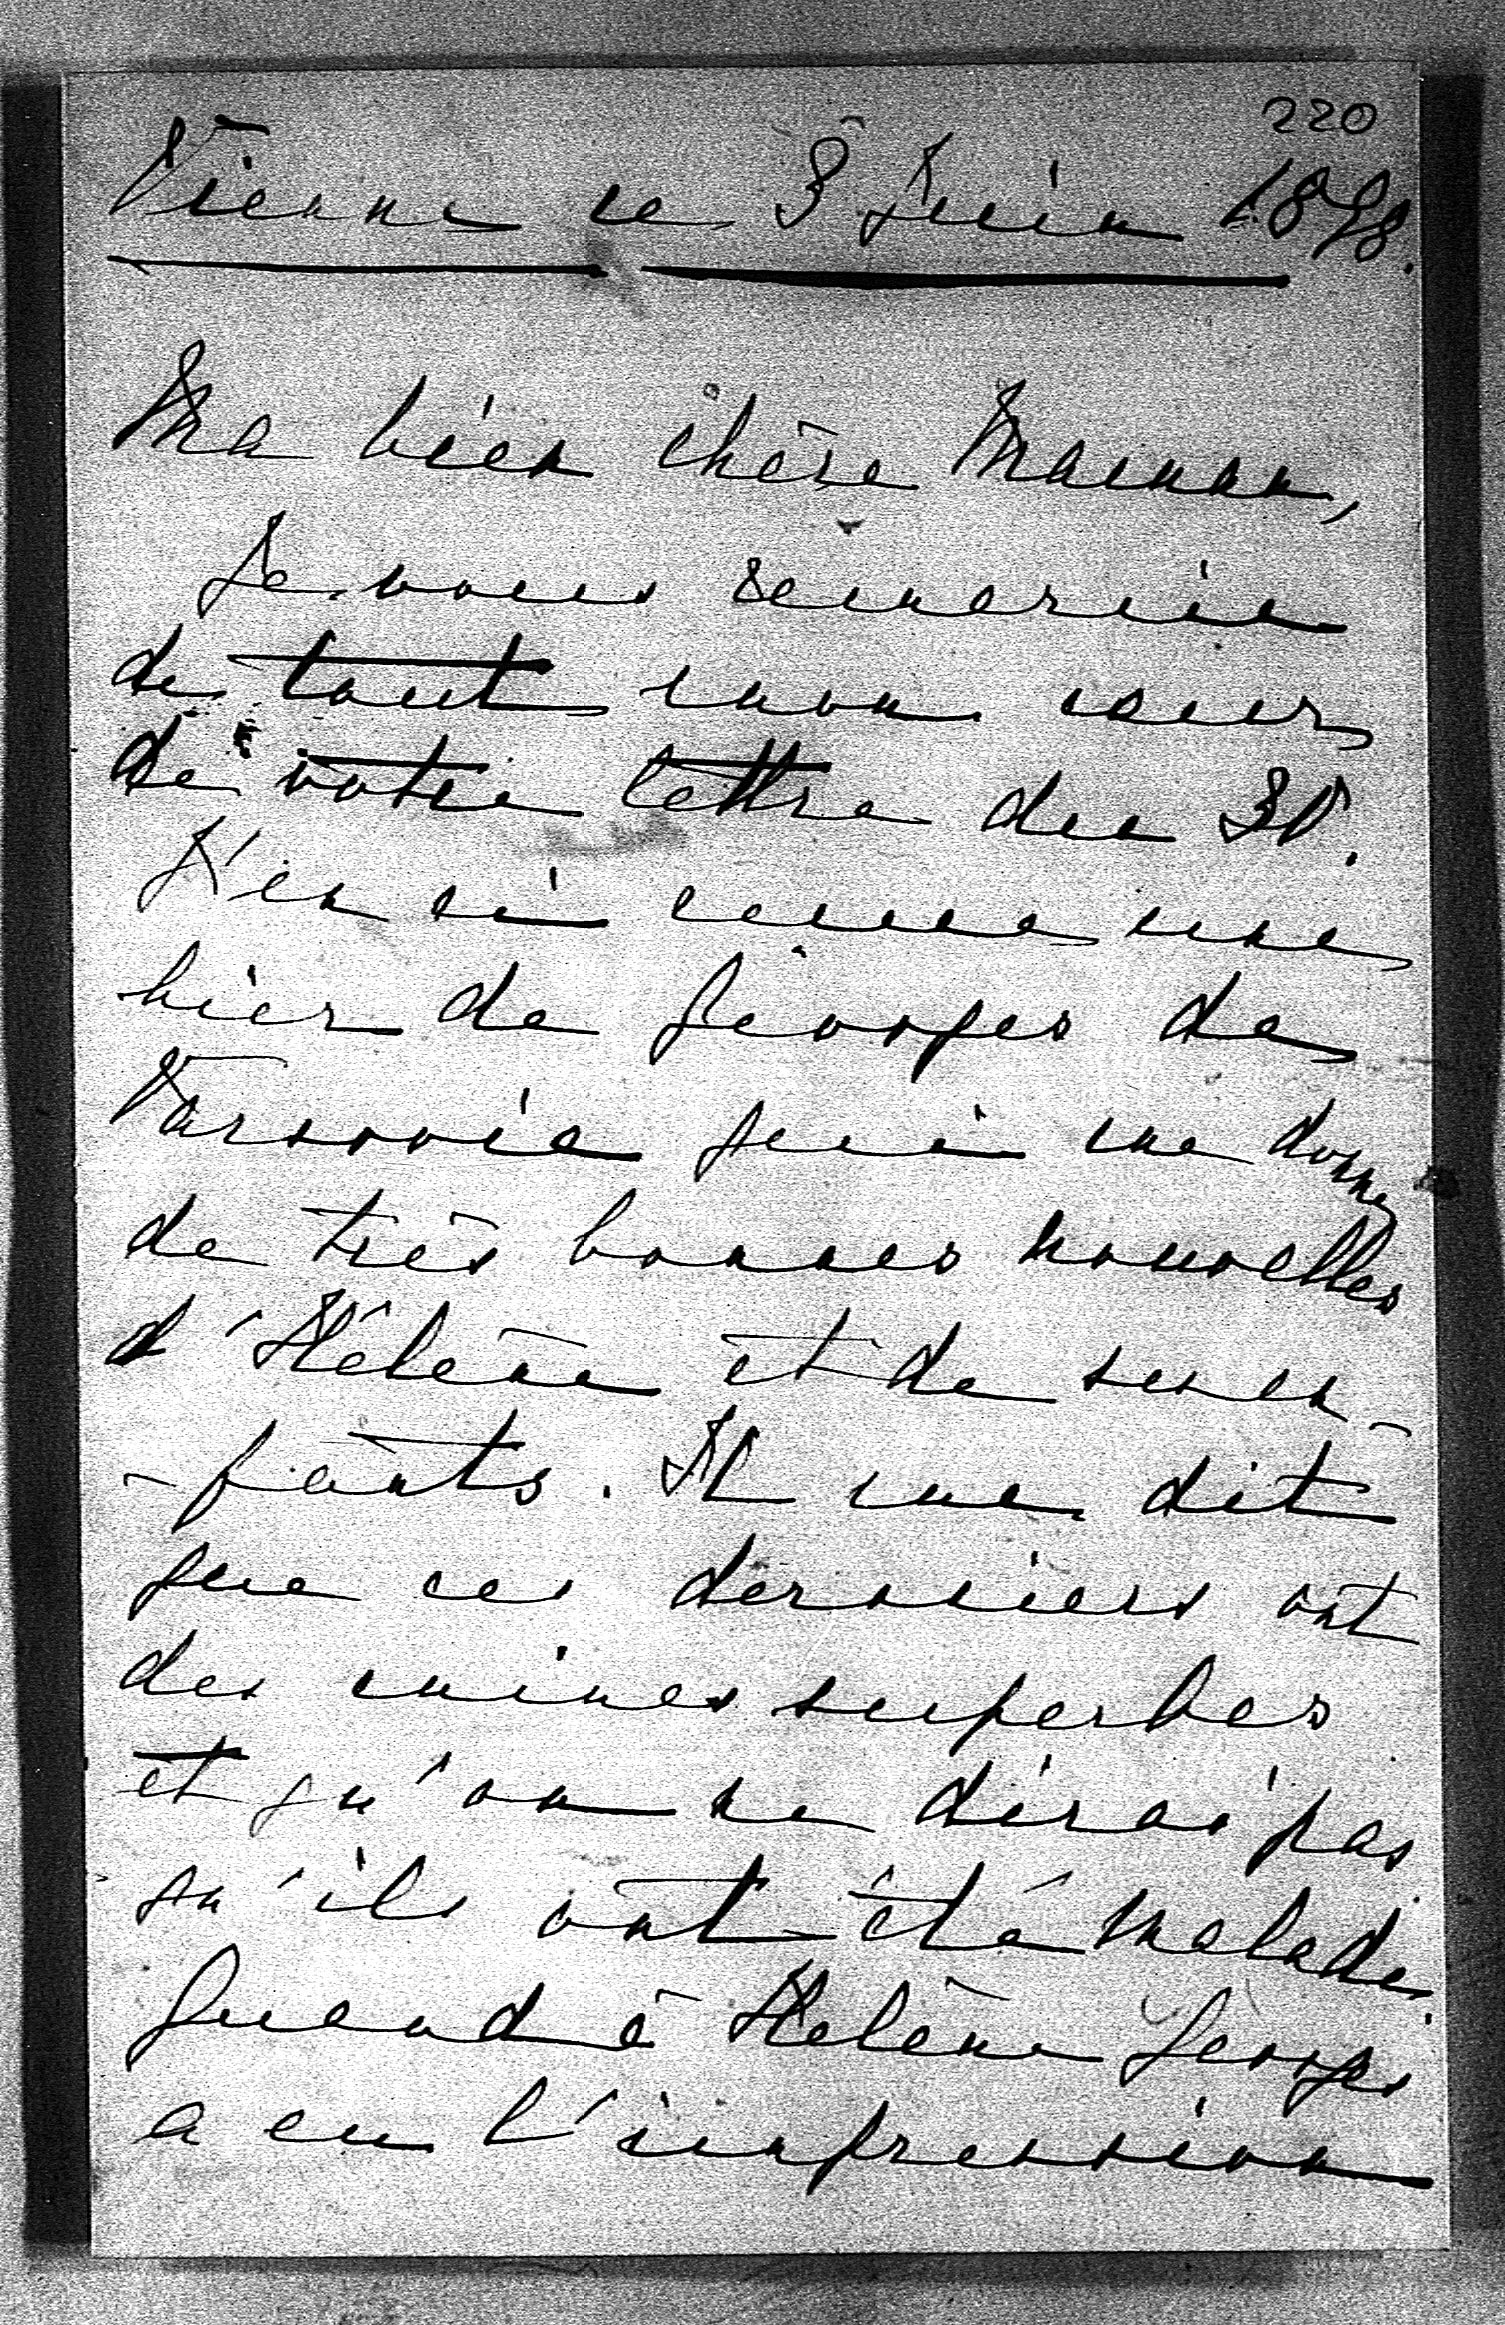 220
Vienne le 3 Juin 1898.
Ma bien chère Maman,
Je vous remercie
de tout mon cœur
de votre lettre du 30.
J'en ai reçue une
hier de Georges de
Varsovie qui me donne
de très bonnes nouvelles
d'Hélène et de ses en-
-fants. Il me dit
que ces derniers ont
des mines superbes
et qu'on ne dirai pas
qu'ils ont été malades.
Quand à Hélène Georges
a eu l'impression